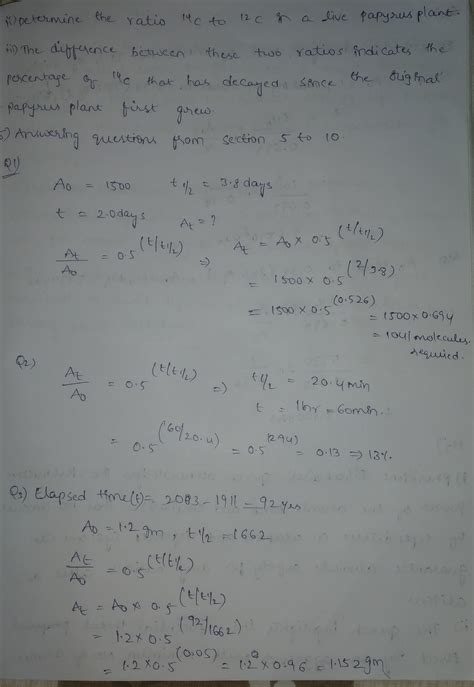 ii) Determine the ratio ¹⁴C to ¹²C in a live papyrus plant.
iii) The difference between these two ratios indicates the
percentage of ¹⁴C that has decayed since the original
papyrus plant first grew.
5) Answering questions from section 5 to 10.
Q1)
A₀ = 1500 t1/2 = 3.8 days
t = 2.0 days At = ?
At/A₀ = 0.5^(t/t1/2) ⇒ At = A₀ × 0.5^(t/t1/2)
= 1500 × 0.5^(2/3.8)
= 1500 × 0.5^(0.526) = 1500 × 0.694
= 1041 molecules
required.
Q2)
At/A₀ = 0.5^(t/t1/2) ⇒ t1/2 = 20.4 min
t = 1hr = 60min.
= 0.5^(60/20.4) = 0.5^(2.94) = 0.13 ⇒ 13%.
Q3) Elapsed time(t) = 2003 - 1911 = 92 yrs
A₀ = 1.2 gm, t1/2 = 1662
At/A₀ = 0.5^(t/t1/2)
At = A₀ × 0.5^(t/t1/2)
= 1.2 × 0.5^(92/1662)
= 1.2 × 0.5^(0.05) = 1.2 × 0.96 = 1.152 gm